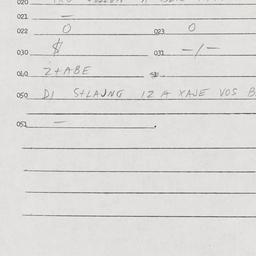 020
021 —
022 O 023 O
030 $ 031 -/-
040 Z+ABE
050 DI S+LAJNG IZ A XAJE VOS B
051 — .